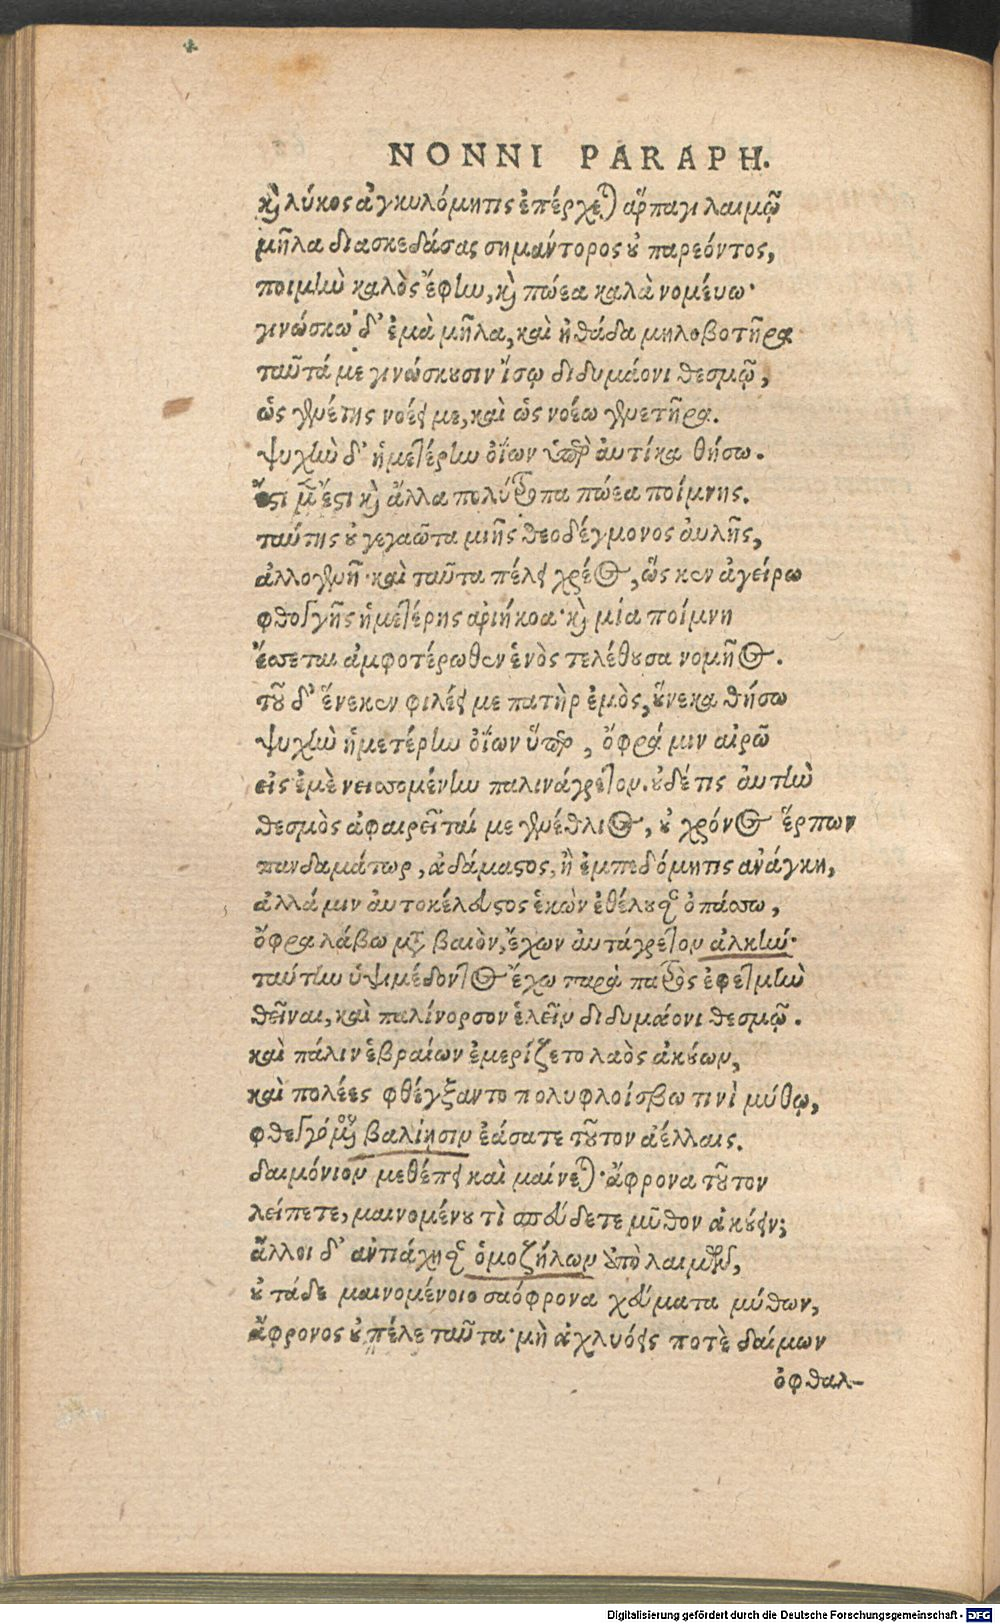 NONNI PARAPH.
καὶ λύκος ἀγκυλόμητις ἐπέρχεται ἅρπαγι λαιμῷ
μῆλα διασκεδάσας σημάντορος οὐ παρεόντος,
ποιμὴν καλὸς ἔφην, καὶ πώεα καλὰ νομέυω·
γινώσκω δ' ἐμὰ μῆλα, καὶ ἠθάδα μηλοβοτῆρα
ταῦτά με γινώσκουσιν ἴσῳ διδυμάονι θεσμῷ,
ὡς γενέτης νοέει με, καὶ ὡς νοέω γενετῆρα.
ψυχὴν δ' ἡμετέρην ὀΐων ὑπὲρ ἀυτίκα θήσω.
ἔστι μοι ἔστι καὶ ἄλλα πολύτροπα πώεα ποίμνης.
ταύτης οὐ γεγαῶτα μιῆς θεοδέγμονος ἀυλῆς,
ἀλλογενῆ· καὶ ταῦτα πέλει χρέος, ὥς κεν ἀγείρω
φθογγῆς ἡμετέρης ἀριήκοα· καὶ μία ποίμνη
ἔσσεται ἀμφοτέρωθεν ἑνὸς τελέθουσα νομῆος.
τοῦ δ' ἕνεκεν φιλέει με πατὴρ ἐμὸς, οὕνεκα θήσω
ψυχὴν ἡμετέρην ὀΐων ὕπερ, ὄφρα μιν αἰρῶ
εἰς ἐμὲ νεισσομένην παλινάγρετον. οὐδέ τις ἀυτὴν
θεσμὸς ἀφαιρεῖταί με γενέθλιος, οὐ χρόνος ἕρπων
πανδαμάτωρ, ἀδάμαστος, ἢ ἐμπεδόμητις ἀνάγκη,
ἀλλά μιν ἀυτοκέλευστος ἑκὼν ἐθέλουσαν ὀπάσσω,
ὄφρα λάβω μετὰ βαιὸν, ἔχων ἀυτάγρετον ἀλκήν·
ταύτην ὑψιμέδοντος ἔχω παρὰ πατρὸς ἐφετμὴν
θεῖναι, καὶ παλίνορσον ἑλεῖν διδυμάονι θεσμῷ.
καὶ πάλιν ἑβραίων ἐμερίζετο λαὸς ἀκούων,
καὶ πολέες φθέγξαντο πολυφλοίσβω τινὶ μύθῳ,
φθεγγόμενον βαλίῃσιν ἐάσατε τοῦτον ἀέλλαις.
δαιμόνιον μεθέπει καὶ μαίνεται· ἄφρονα τοῦτον
λείπετε, μαινομένου τὶ σπεύδετε μῦθον ἀκούειν;
ἄλλοι δ' ἀντιάχησαν ὁμοζήλων ὑπὸ λαιμῶν,
οὐ τάδε μαινομένοιο σαόφρονα χεύματα μύθων,
ἄφρονος οὐ πέλε ταῦτα· μὴ ἀχλυόεις ποτὲ δαίμων
ὀφθαλ-
Digitalisierung gefördert durch die Deutsche Forschungsgemeinschaft - DFG